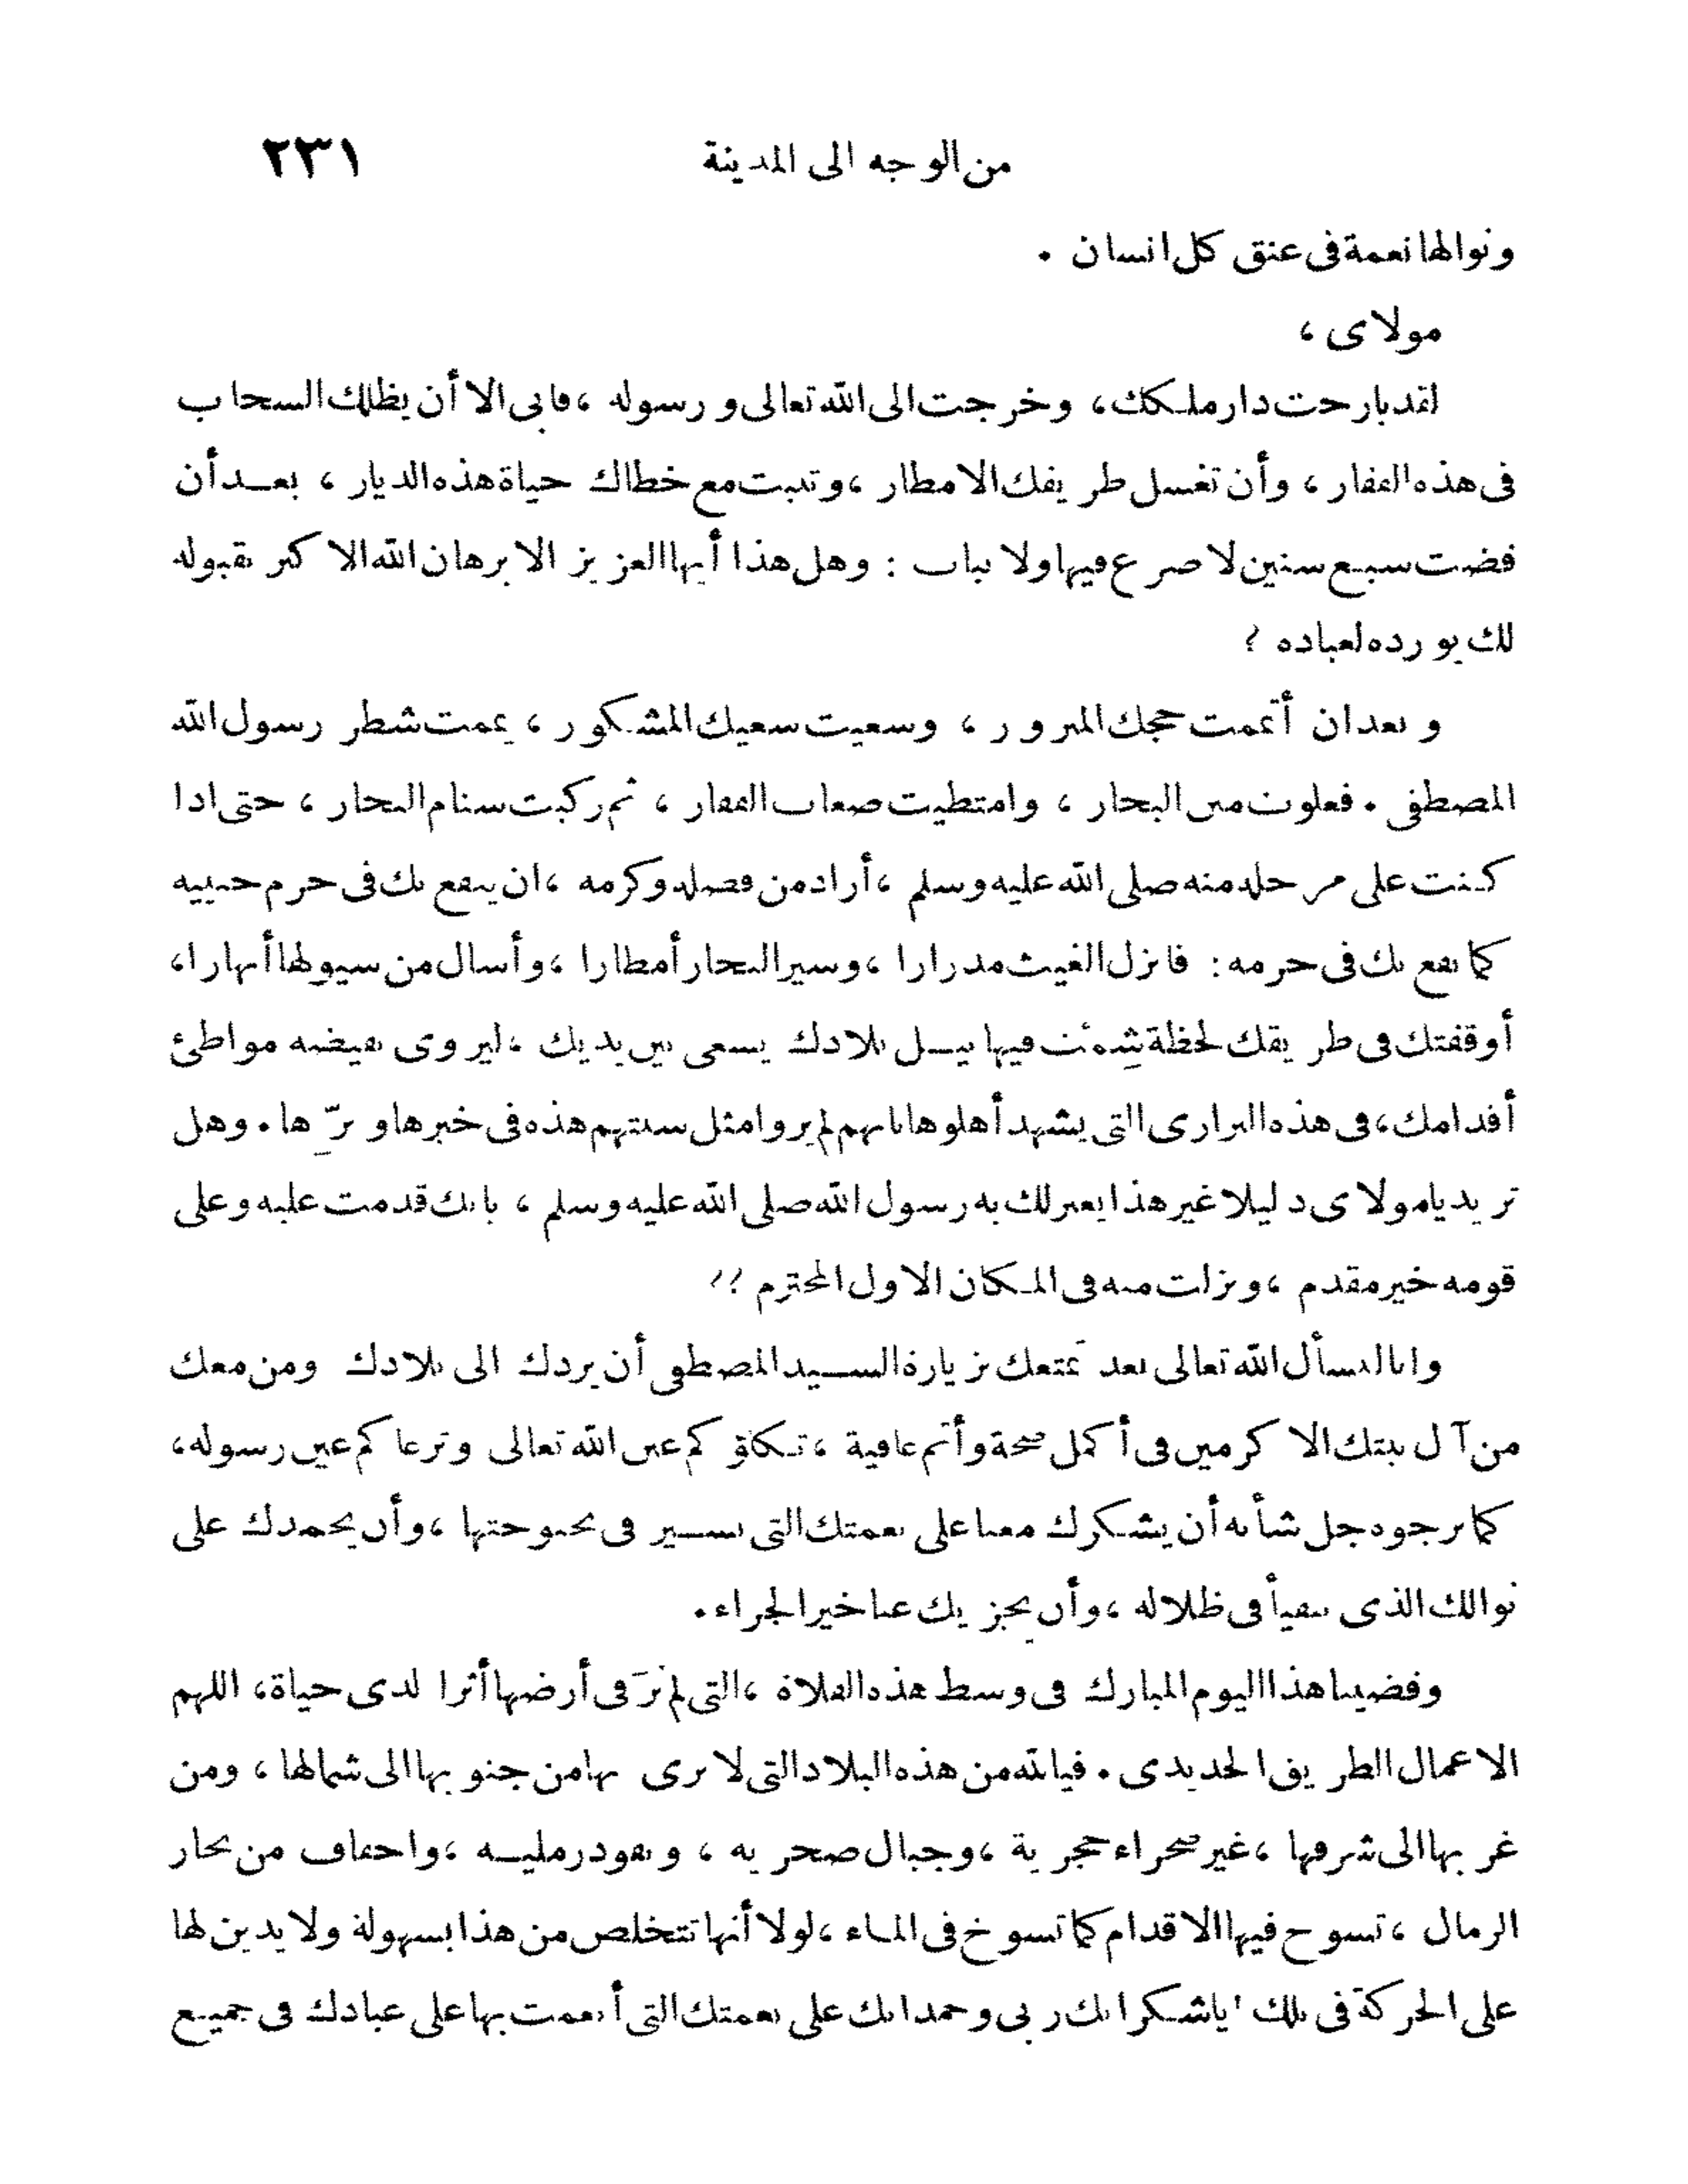 من الوجه الى المدينة ٢٣١
ونوالها نعمة فى عنق كل انسان .
مولاى ،
لقد بارحت دار ملكك، وخرجت الى الله تعالى ورسوله ، فابى الا أن يظلك السحاب
فى هذه القفار ، وأن تغسل طريقك الامطار ، وتنبت مع خطاك حياة هذه الديار ، بعد أن
قضت سبع سنين لا ضرع فيها ولا نبات : وهل هذا أيها العزيز الا برهان الله الاكبر بقبوله
لك يورده لعباده ؟
وبعد ان أتممت حجك المبرور ، وسعيت سعيك المشكور ، يممت شطر رسول الله
المصطفى . فعلوت متن البحار ، وامتطيت صعاب القفار ، ثم ركبت سنام البخار ، حتى اذا
كنت على مرحلة منه صلى الله عليه وسلم ، أراد من فضله وكرمه ، ان ينفع بك فى حرم حبيبه
كما نفع بك فى حرمه : فانزل الغيث مدرارا ، وسير البحار أمطارا ، وأسال من سيولها أنهارا ،
أوقفتك فى طريقك لحظة شمت فيها نيل بلادك يسعى بين يديك ، ليروى بفيضه مواطئ
أقدامك ، فى هذه البرارى التى يشهد أهلوها بانهم لم يروا مثل سنتهم هذه فى خيرها وبرّها . وهل
تريد يا مولاى دليلا غير هذا يعبر لك به رسول الله صلى الله عليه وسلم ، بانك قدمت عليه وعلى
قومه خير مقدم ، ونزلت منه فى المكان الاول المحترم ؟؟
وانا لنسأل الله تعالى بعد تمتعك بزيارة السيد المصطفى أن يردك الى بلادك ومن معك
من آل بيتك الاكرمين فى أكمل صحة وأتم عافية ، تكلؤكم عين الله تعالى وترعاكم عين رسوله ،
كما نرجوه جل شأنه أن يشكرك معنا على نعمتك التى نسير فى بحبوحتها ، وأن يحمدك على
نوالك الذى نتفيأ فى ظلاله ، وأن يجزيك عنا خير الجزاء .
وقضينا هذا اليوم المبارك فى وسط هذه الفلاة ، التى لم نرَ فى أرضها أثرا لذى حياة ، اللهم
الا عمال الطريق الحديدى . فيالله من هذه البلاد التى لا نرى بها من جنوبها الى شمالها ، ومن
غربها الى شرقها ، غير صحراء حجرية ، وجبال صخريه ، ونفود رمليه ، واحقاف من بحار
الرمال ، تسوخ فيها الاقدام كما تسوخ فى الماء ، لولا أنها تتخلص من هذا بسهولة ولا يدين لها
على الحركة فى تلك ! ياشكرا لك ربى وحمدا لك على نعمتك التى أنعمت بها على عبادك فى جميع